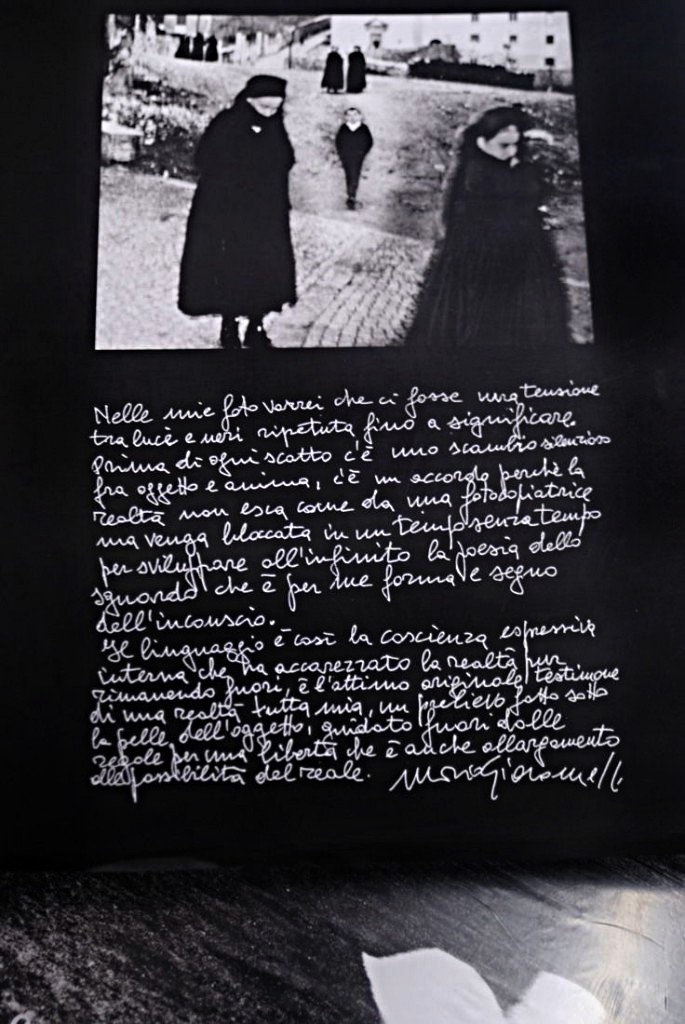 Nelle mie foto vorrei che ci fosse una tensione
tra luci e neri ripetuta fino a significare.
Prima di ogni scatto c'è uno scambio silenzioso
fra oggetto e anima, c'è un accordo perchè la
realtà non esca come da una fotocopiatrice
ma venga bloccata in un tempo senza tempo
per sviluppare all'infinito la poesia dello
sguardo che è per me forma e segno
dell'inconscio.
Il linguaggio è così la coscienza espressiva
interna che ha accarezzato la realtà pur
rimanendo fuori, è l'attimo originale testimone
di una realtà tutta mia, un prelievo fatto sotto
la pelle dell'oggetto, guidato fuori dalle
regole per una libertà che è anche allargamento
alle possibilità del reale. Mario Giacomelli